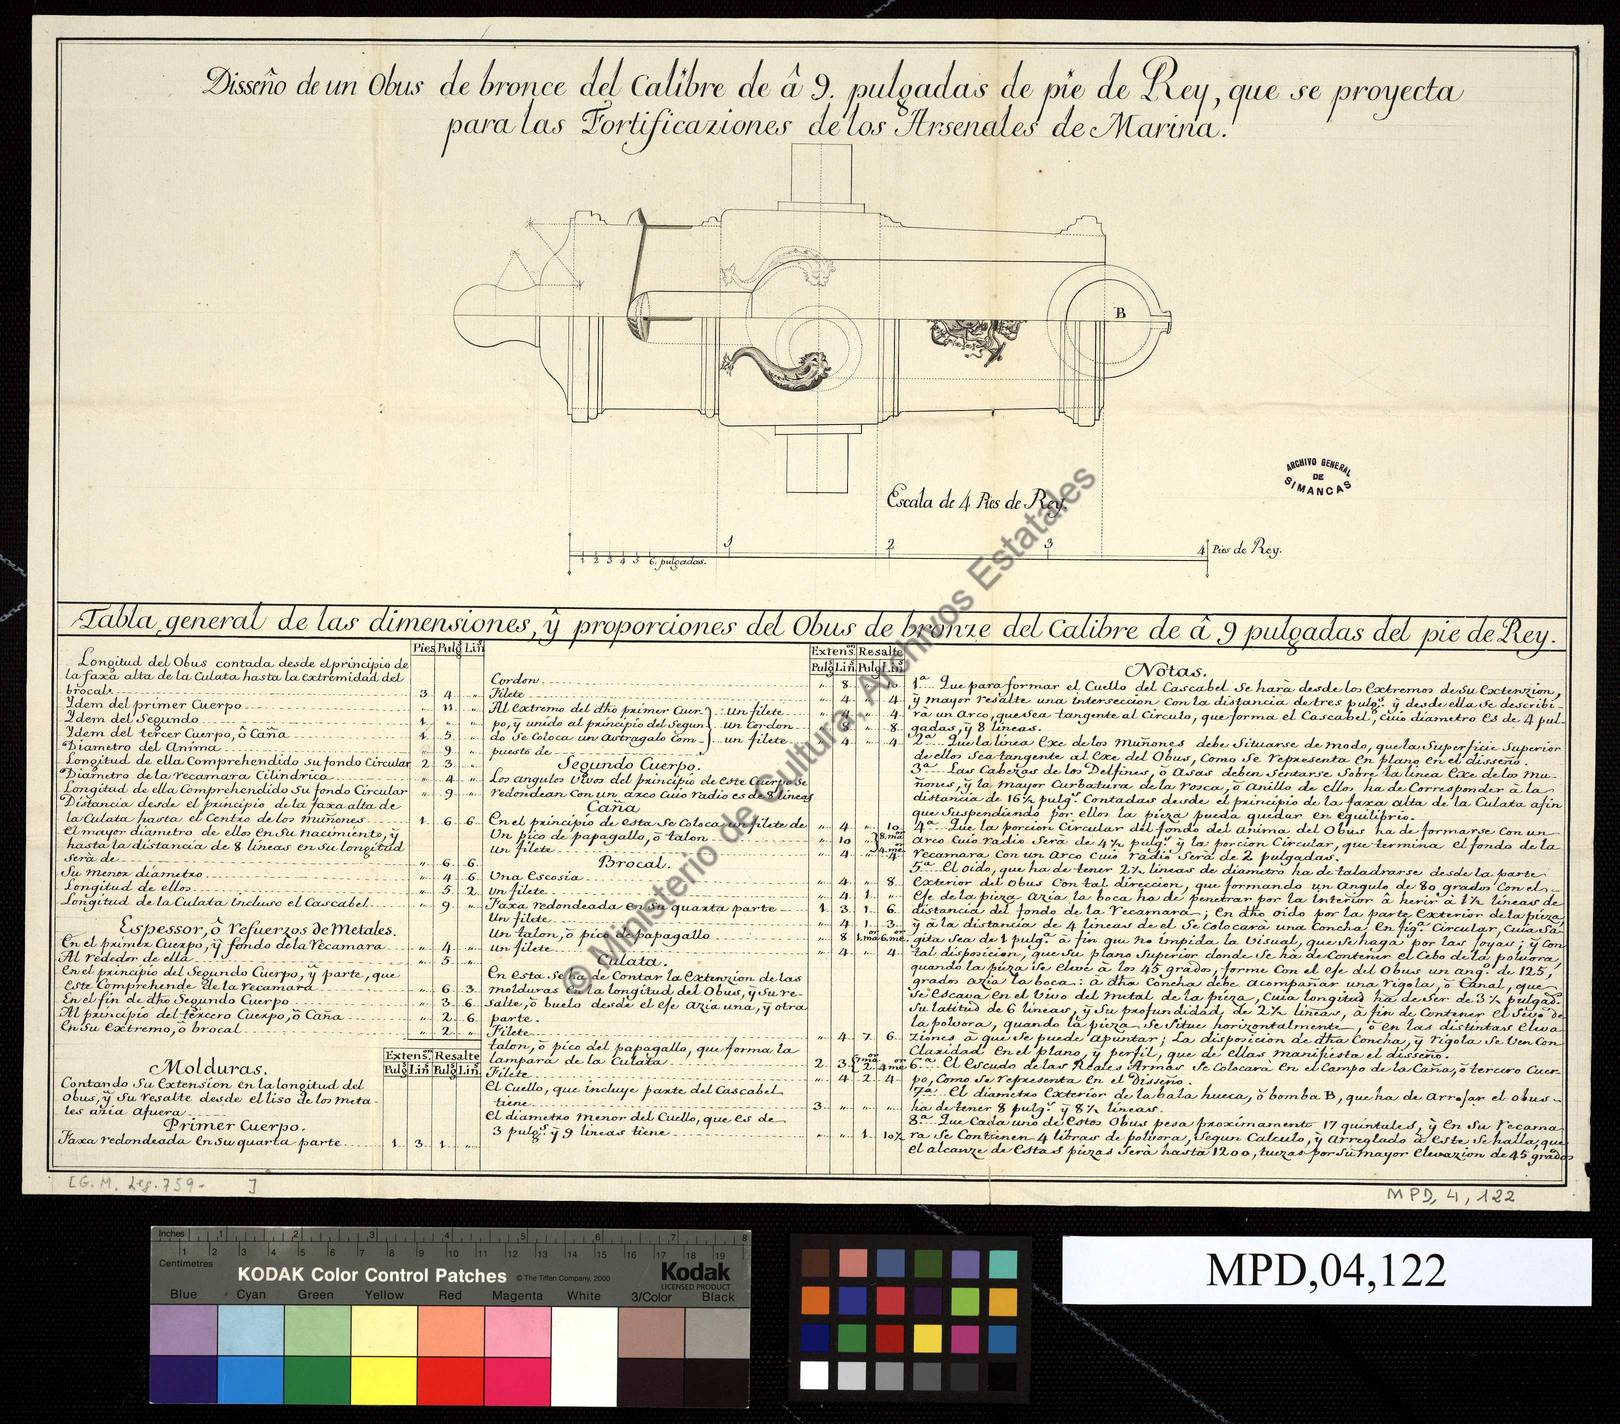 Disseño de un Obus de bronce del Calibre de â 9. pulgadas de pie de Rey, que se proyecta
para las Fortificaziones de los Arsenales de Marina.
B
ARCHIVO GENERAL
DE
SIMANCAS
Escala de 4 Pies de Rey.
1 2 3 4 Pies de Rey.
1 2 3 4 5 6. pulgadas.
Tabla general de las dimensiones, ÿ proporciones del Obus de bronze del Calibre de â 9 pulgadas del pie de Rey.
Pies Pulg.s Lin.s
Longitud del Obus contada desde el principio de
la faxa alta de la Culata hasta la extremidad del
brocal 3 4 "
Ydem del primer Cuerpo " 11 "
Ydem del Segundo 1 " "
Ydem del tercer Cuerpo, ô Caña 1 5 "
Diametro del Anima " 9 "
Longitud de ella Comprehendido su fondo Circular 2 3 "
Diametro de la recamara Cilindrica " 4 "
Longitud de ella Comprehendido Su fondo Circular " 9 "
Distancia desde el principio de la faxa alta de
la Culata hasta el Centro de los muñones 1 6 6
El mayor diametro de ellos en Su nacimiento, ÿ
hasta la distancia de 8 lineas en su longitud
serà de " 6 6
Su menor diametro " 4 6
Longitud de ellos " 5 2
Longitud de la Culata incluso el Cascabel " 9 "
Espessor, ô refuerzos de Metales.
En el primer Cuerpo, ÿ fondo de la Recamara " 4 "
Al rededor de ella " 5 "
En el principio del Segundo Cuerpo, ÿ parte, que
este Comprehende de la recamara " 6 3
En el fin de dho Segundo Cuerpo " 3 6
Al principio del tercero Cuerpo, ô Caña " 2 6
En su extremo, ô brocal " 2 "
Extens.on Resalte
Pulg.s Lin.s Pulg.s Lin.s
Molduras.
Contando Su extension en la longitud del
Obus, ÿ Su resalte desde el liso de los meta-
les azia afuera
Primer Cuerpo.
Faxa redondeada en Su quarta parte 1 3 1 "
Extens.on Resalte
Pulg.s Lin.s Pulg.s Lin.s
Cordon " 8
Filete " 4 " 4
Al extremo del dho primer Cuer- un filete " 4 " 4
po, ÿ unido al principio del Segun un Cordon " 8
do Se Coloca un Astragalo Com- un filete " 4 " 4
puesto de
Segundo Cuerpo.
Los angulos vivos del principio de este Cuerpo Se
redondean con un arco Cuio radio es de 8 lineas
Caña
En el principio de esta Se Coloca un filete de " 4 " 10
Un pico de papagallo, ô talon " 10
Un filete " 4 " 4
Brocal.
Una Escosia " 4 " 8
un filete " 4 1 "
Faxa redondeada en Su quarta parte 1 3 1 6
Un filete " 4 1 3
Un talon, ô pico de papagallo " 8
un filete " 4 " 4
Culata.
En esta Se ha de Contar la extenzion de las
molduras en la longitud del Obus, ÿ Su re-
salte, ô buelo desde el Eje Azia una, ÿ otra
parte.
Filete " 4 7 6
talon, ô pico del papagallo, que forma la
lampara de la Culata 2 3
Filete " 4 2 4
El Cuello, que incluye parte del Cascabel
tiene 3 " " "
El diametro menor del Cuello, que es de
3 pulg.s ÿ 9 lineas tiene " " 1 10½
Notas.
1.a Que para formar el Cuello del Cascabel Se harà desde los Extremos de Su Extenzion,
ÿ mayor resalte una interseccion Con la distancia de tres pulg.s ÿ desde ella Se describi-
ra un Arco, que Sea tangente al Circulo, que forma el Cascabel, Cuio diametro es de 4 pul-
gadas, ÿ 8 lineas.
2.a Que la linea exe de los Muñones debe Situarse de modo, que la Superficie Superior
de ellos Sea tangente al Exe del Obus, Como Se representa en plano en el disseño.
3.a Las Cabezas de los Delfines, ô Asas deben Sentarse Sobre la linea Exe de los Mu-
ñones, ÿ la mayor Curbatura de la rosca, ô Anillo de ellos ha de Corresponder à la
distancia de 16½ pulg.s Contadas desde el principio de la faxa alta de la Culata afin
que Suspendiendo por ellos la pieza pueda quedar en equilibrio.
4.a Que la porcion Circular del fondo del Anima del Obus ha de formarse Con un
Arco Cuio radio Serà de 4½ pulg.s ÿ la porcion Circular, que termina el fondo de la
recamara Con un Arco Cuio radio Serà de 2 pulgadas.
5.a El oido, que ha de tener 2½ lineas de diametro ha de taladrarse desde la parte
Exterior del Obus Con tal direccion, que formando un Angulo de 80 grados Con el
Eje de la pieza Azia la boca ha de penetrar por la Interior à herir à 1½ lineas de
distancia del fondo de la recamara; En dho Oido por la parte Exterior de la pieza,
ÿ à la distancia de 4 lineas de el Se Colocarà una Concha En fig.a Circular, Cuia Sa-
gita Sea de 1 pulg.a à fin que no impida la Visual, que Se haga por las Joyas; ÿ Con
tal disposicion, que Su plano Superior donde Se ha de Contener el Cebo de la polvora,
quando la pieza Se eleve à los 45 grados, forme Con el eje del Obus un ang.o de 125,
grados Azia la boca: à dha Concha debe Acompañar una rigola, ô Canal, que
Se escava en el Vivo del Metal de la pieza, Cuia longitud ha de Ser de 3½ pulgad.s
Su latitud de 6 lineas, ÿ Su profundidad, de 2½ lineas, à fin de Contener el
la polvora, quando la pieza Se Situe horizontalmente, ô en las distintas Eleva
ziones à que Se puede Apuntar; La disposicion de dha Concha, ÿ rigola Se Ven Con
Claridad En el plano, ÿ perfil, que de ellas manifiesta el disseño.
6.a El Escudo de las Reales Armas Se Colocarà En el Campo de la Caña, ô tercero Cuer-
po, Como Se representa En el Disseño.
7.a El diametro Exterior de la bala hueca, ô bomba B, que ha de Arrojar el Obus
ha de tener 8 pulg.s ÿ 8½ lineas.
8.a Que Cada uno de estos Obus pesa proximamente 17 quintales, ÿ En Su recama
ra Se Contienen 4 libras de polvora, Segun Calculo, ÿ Arreglado à este Se halla, que
el alcanze de Estas piezas Serà hasta 1200, tuezas por Su mayor Elevazion de 45 grados
[G. M. Leg. 759- ]
MPD, 4, 122
© Ministerio de Cultura. Archivos Estatales
Inches 1 2 3 4 5 6 7 8
Centimetres 1 2 3 4 5 6 7 8 9 10 11 12 13 14 15 16 17 18 19
KODAK Color Control Patches © The Tiffen Company, 2000 Kodak
LICENSED PRODUCT
Blue Cyan Green Yellow Red Magenta White 3/Color Black
MPD,04,122